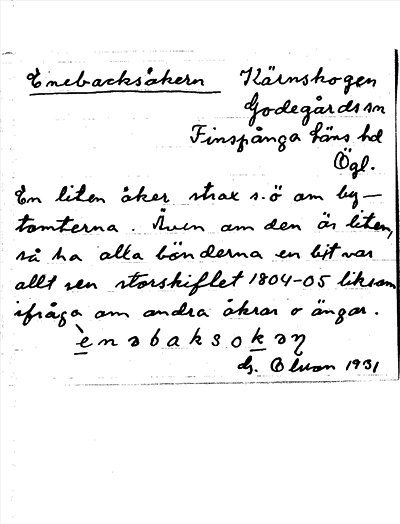 Enebacksåkern Kärnskogen
Godegårds sn
Finspånga läns hd
Ögl.
En liten åker strax s.ö om by-
tomterna. Även om den är liten,
så ha alla bönderna en bit var
allt sen storskiftet 1804-05 liksom
ifråga om andra åkrar o ängar.
ènəbaksokəŋ
G. Olson 1931